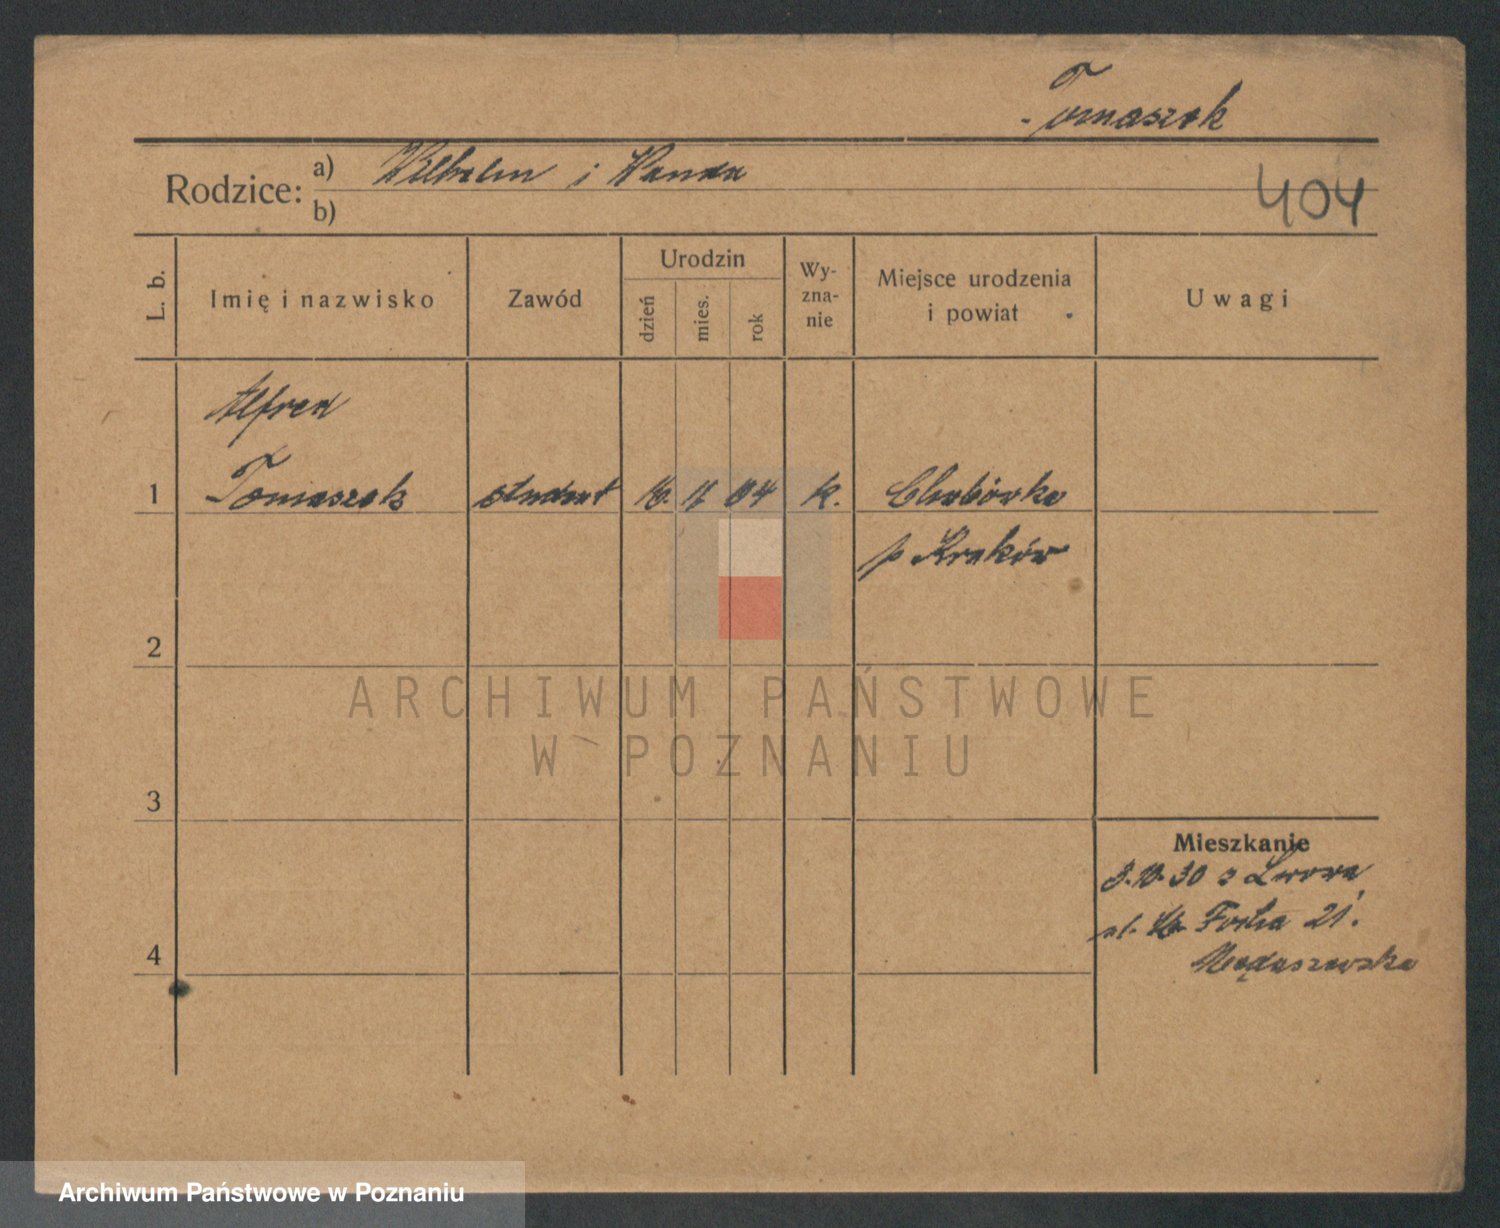 Tomaszek
Rodzice: a) Wilhelm i Wanda
b)
404
L. b. Imię i nazwisko Zawód Urodzin dzień mies. rok Wy-zna-nie Miejsce urodzenia i powiat Uwagi
Alfred
1 Tomaszek student 04 k. Chabówka
p Kraków
2
ARCHIWUM PAŃSTWOWE
W POZNANIU
3
Mieszkanie
30 z Lwowa
Focha 21.
4
Archiwum Państwowe w Poznaniu